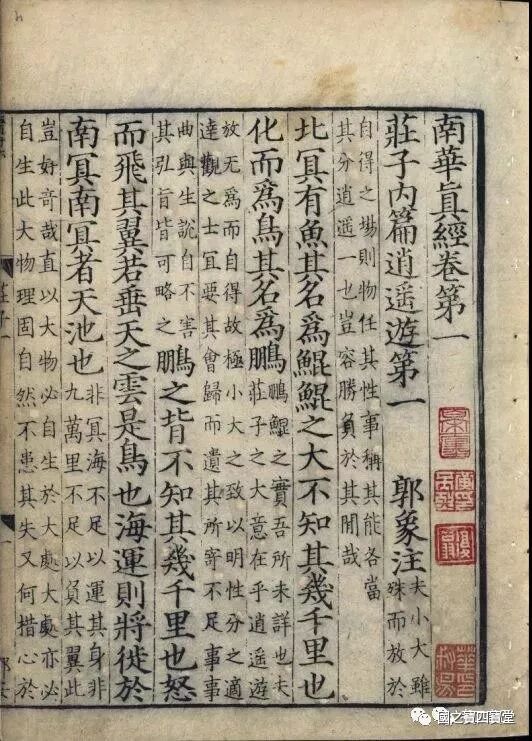 南華眞經卷第一
莊子内篇逍遥遊第一 郭象注 夫小大雖
殊而放於
自得之場則物任其性事稱其能各當
其分逍遥一也豈容勝負於其閒哉
北冥有魚其名爲鯤鯤之大不知其幾千里也
化而爲鳥其名爲鵬 鵬鯤之實吾所未詳也夫
莊子之大意在乎逍遥遊
放无爲而自得故極小大之致以明性分之適
達觀之士冝要其會歸而遺其所寄不足事事
曲與生說自不害
其弘旨皆可略之 鵬之背不知其幾千里也怒
而飛其翼若垂天之雲是鳥也海運則將徙於
南冥南冥者天池也 非冥海不足以運其身非
九萬里不足以負其翼此
豈好奇哉直以大物必自生於大處大處亦必
自生此大物理固自然不患其失又何措心於
國之寳四寳堂